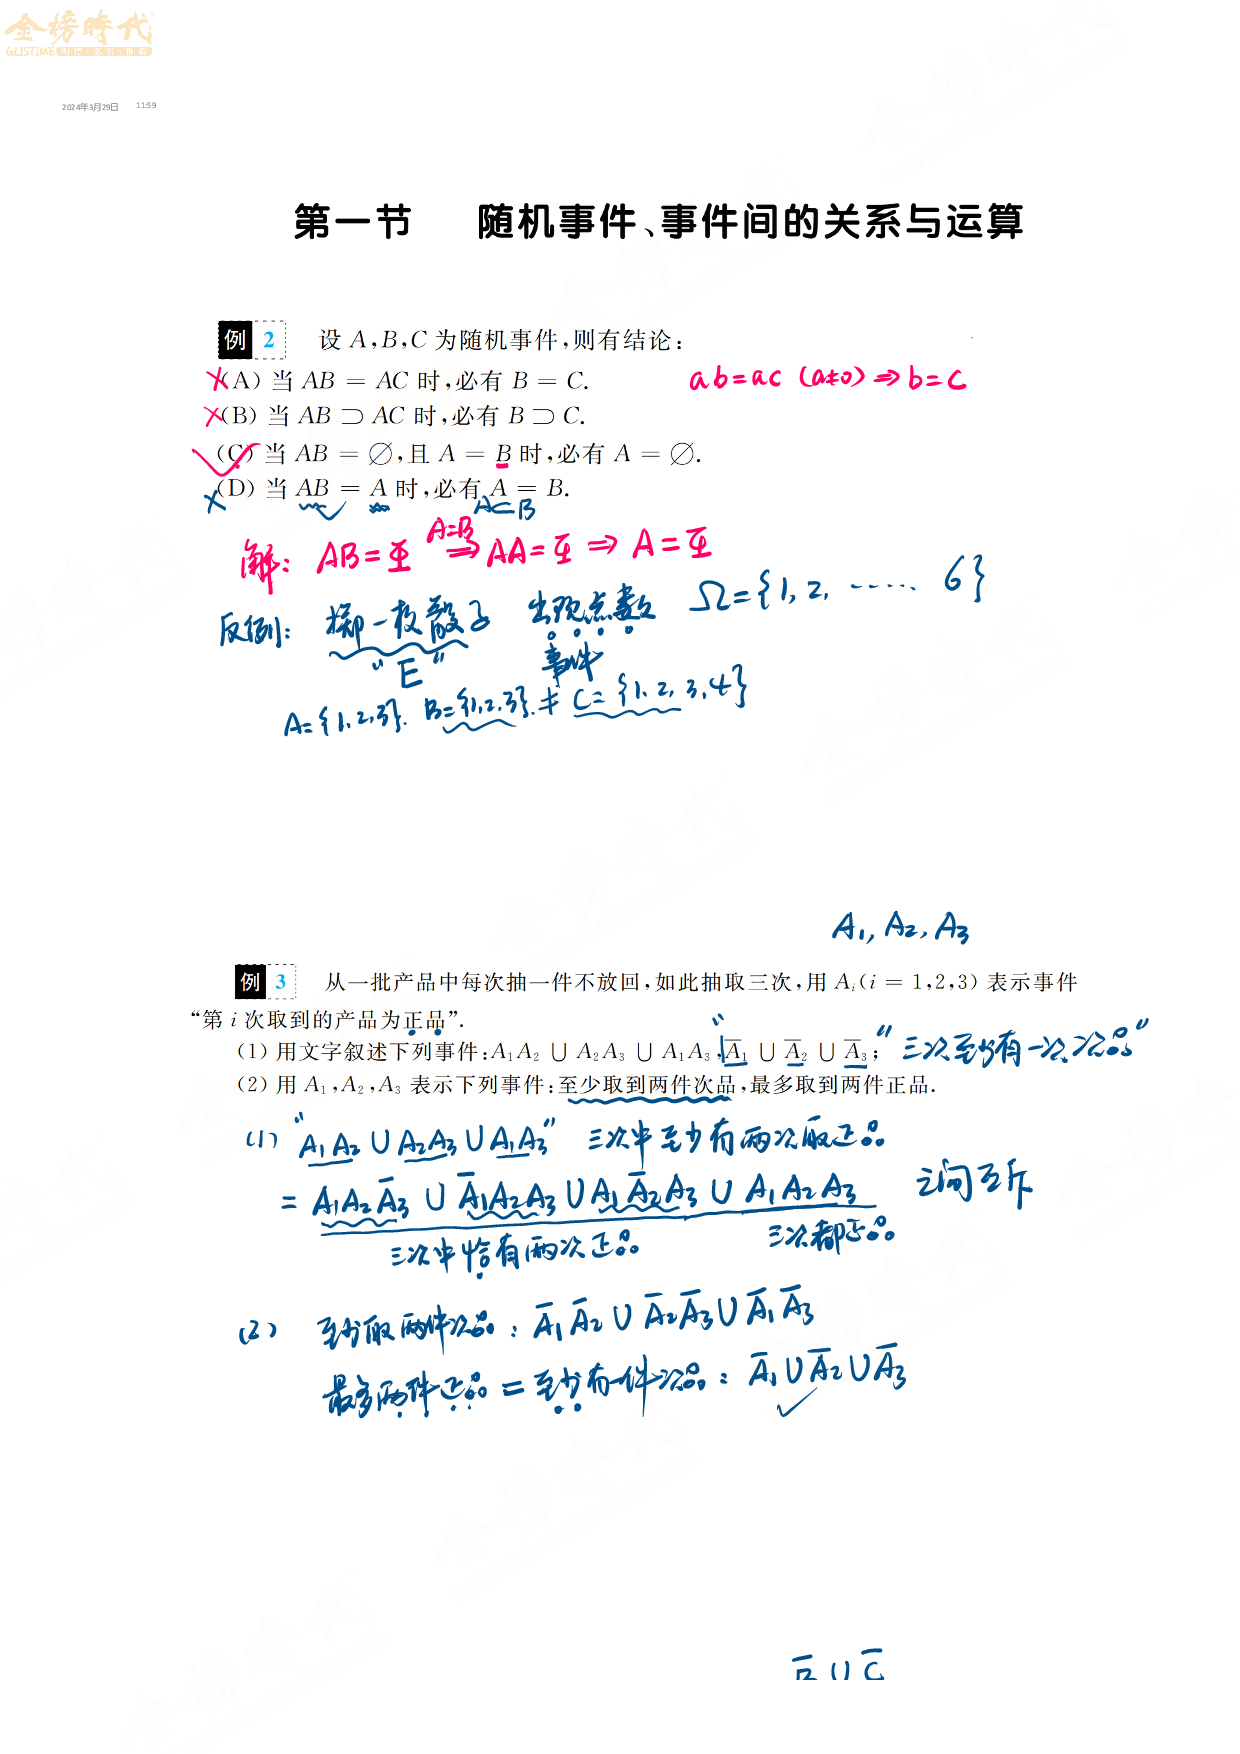 金榜時代
GLISTIME
2024年3月29日 11:59
第一节 随机事件、事件间的关系与运算
例 2 设 A,B,C 为随机事件,则有结论:
(A) 当 AB = AC 时,必有 B = C.
ab=ac (a≠0) ⇒ b=c
(B) 当 AB ⊃ AC 时,必有 B ⊃ C.
(C) 当 AB = ∅,且 A = B 时,必有 A = ∅.
(D) 当 AB = A 时,必有 A = B.
A⊂B
解: AB=∅ A=B ⇒ AA=∅ ⇒ A=∅
反例: 掷一枚骰子 出现点数 Ω={1, 2, ...... 6}
"E" 事件
A={1,2,3}. B={1,2,3}. ≠ C={1,2,3,4}
A₁, A₂, A₃
例 3 从一批产品中每次抽一件不放回,如此抽取三次,用 Aᵢ(i = 1,2,3) 表示事件
“第 i 次取到的产品为正品”.
(1) 用文字叙述下列事件:A₁A₂ ∪ A₂A₃ ∪ A₁A₃,A̅₁ ∪ A̅₂ ∪ A̅₃; "三次至少有一次次品"
(2) 用 A₁,A₂,A₃ 表示下列事件:至少取到两件次品,最多取到两件正品.
(1) "A₁A₂ ∪ A₂A₃ ∪ A₁A₃" 三次中至少有两次取正品
= A₁A₂A̅₃ ∪ A̅₁A₂A₃ ∪ A₁A̅₂A₃ ∪ A₁A₂A₃ 之间互斥
三次中恰有两次正品 三次都正品
(2) 至少取两件次品: A̅₁A̅₂ ∪ A̅₂A̅₃ ∪ A̅₁A̅₃
最多两件正品 = 至少有一件次品: A̅₁∪A̅₂∪A̅₃
B̅ ∪ C̅